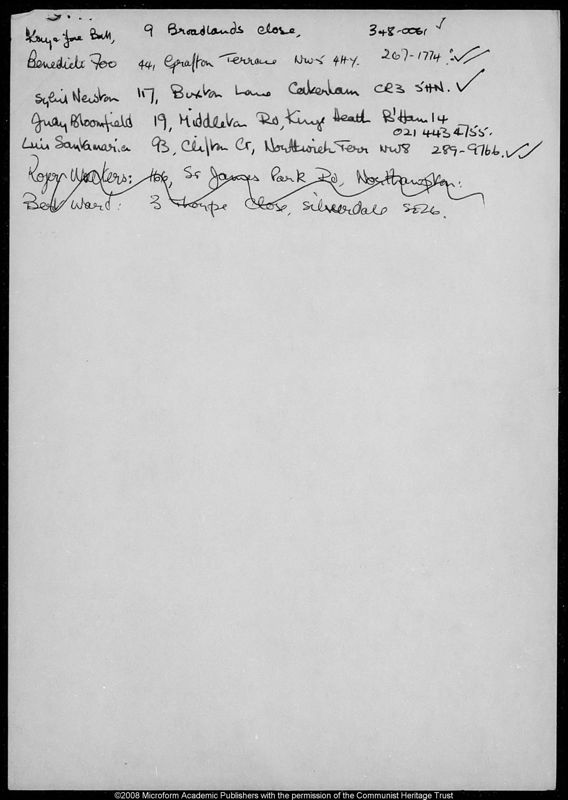 9 Broadlands Close, 348-0061 ✓
Benedicte Foo 44, Grafton Terrace NW5 4HY. 267-1774 ✓✓
Sylvia Newton 117, Buxton Lane Caterham CR3 5HN. ✓
Judy Bloomfield 19, Middleton Rd, Kings Heath B'Ham 14
021 443 4755.
Luis Santamaria 93, Clifton Ct, Northwick Terr NW8 289-9766. ✓✓
Roger Walkers: 166, St James Park Rd, Northampton:
Ward: 3 Thorpe Close, Silverdale SE26.
©2008 Microform Academic Publishers with the permission of the Communist Heritage Trust